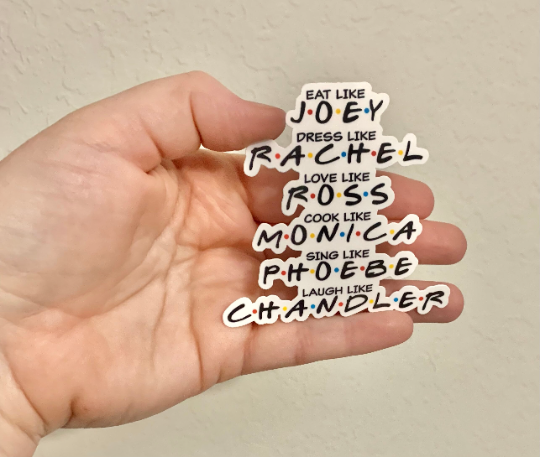 EAT LIKE
J•O•E•Y
DRESS LIKE
R•A•C•H•E•L
LOVE LIKE
R•O•S•S
COOK LIKE
M•O•N•I•C•A
SING LIKE
P•H•O•E•B•E
LAUGH LIKE
C•H•A•N•D•L•E•R